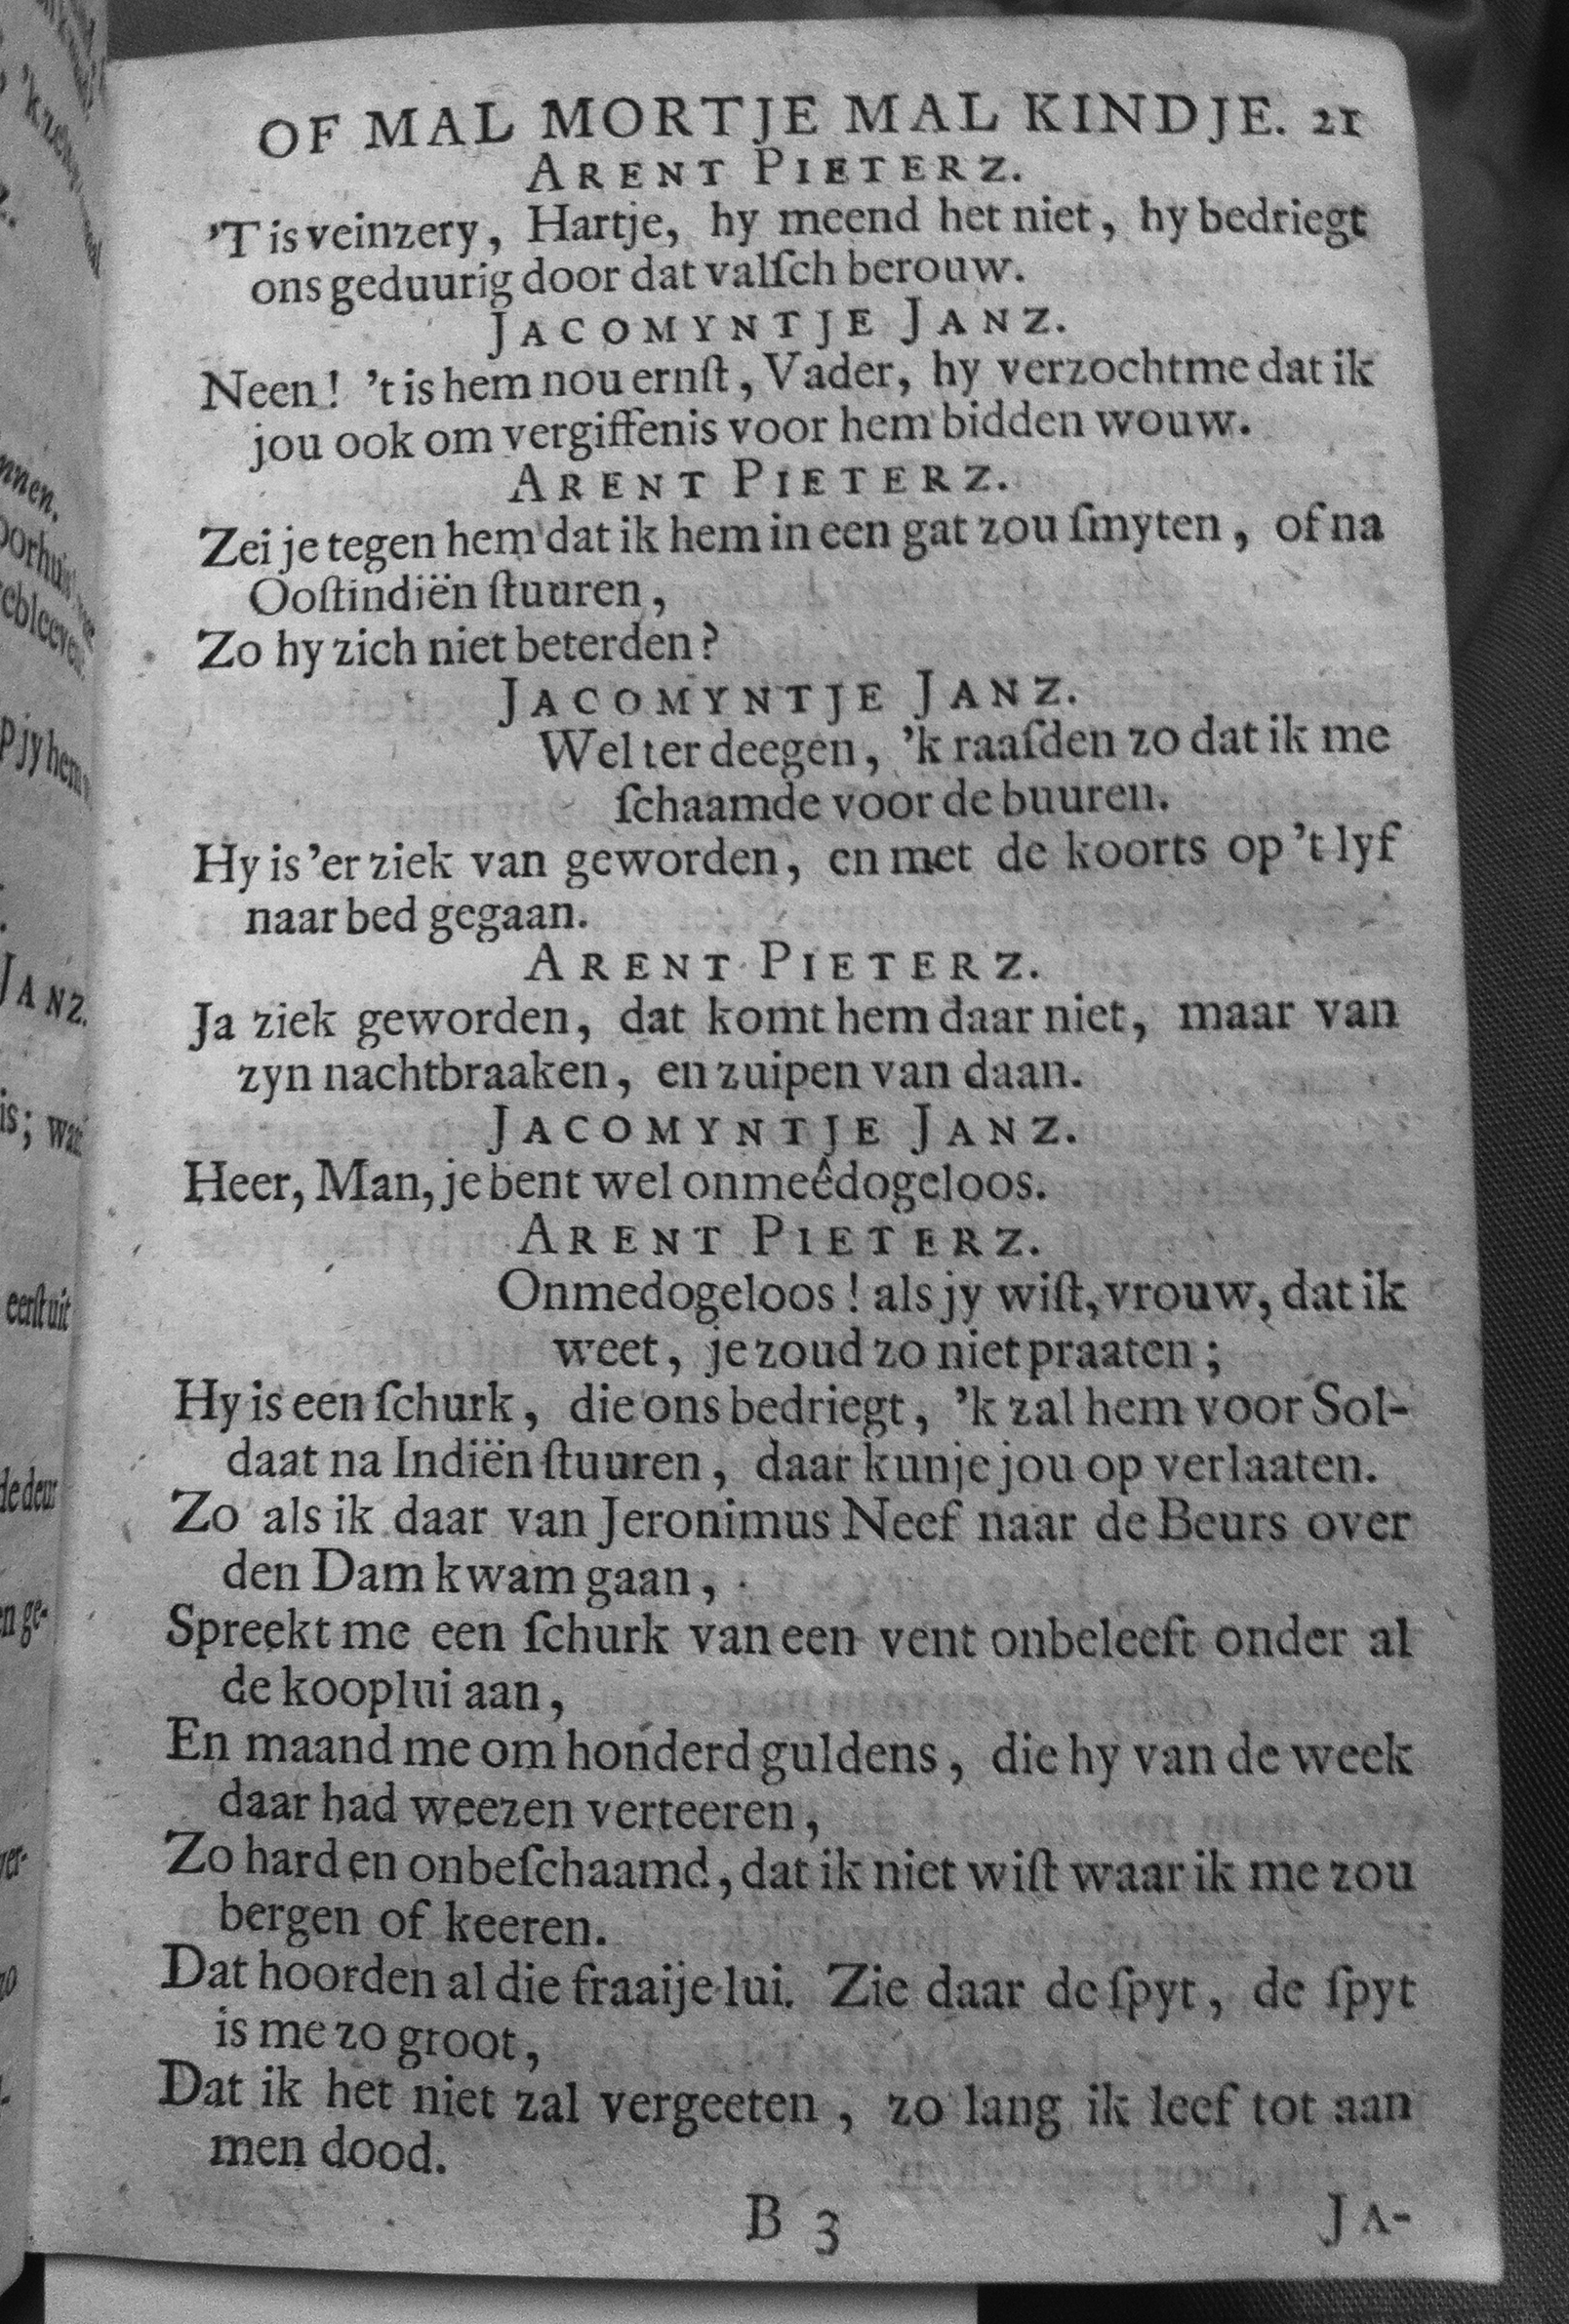 OF MAL MORTJE MAL KINDJE. 21
ARENT PIETERZ.
'T is veinzery, Hartje, hy meend het niet, hy bedriegt
ons geduurig door dat valſch berouw.
JACOMYNTJE JANZ.
Neen! 't is hem nou ernſt, Vader, hy verzocht me dat ik
jou ook om vergiffenis voor hem bidden wouw.
ARENT PIETERZ.
Zei je tegen hem dat ik hem in een gat zou ſmyten, of na
Ooſtindiën ſtuuren,
Zo hy zich niet beterden?
JACOMYNTJE JANZ.
Wel ter deegen, 'k raaſden zo dat ik me
ſchaamde voor de buuren.
Hy is 'er ziek van geworden, en met de koorts op 't lyf
naar bed gegaan.
ARENT PIETERZ.
Ja ziek geworden, dat komt hem daar niet, maar van
zyn nachtbraaken, en zuipen van daan.
JACOMYNTJE JANZ.
Heer, Man, je bent wel onmeêdogeloos.
ARENT PIETERZ.
Onmedogeloos! als jy wiſt, vrouw, dat ik
weet, je zoud zo niet praaten;
Hy is een ſchurk, die ons bedriegt, 'k zal hem voor Sol-
daat na Indiën ſtuuren, daar kunje jou op verlaaten.
Zo als ik daar van Jeronimus Neef naar de Beurs over
den Dam kwam gaan,
Spreekt me een ſchurk van een vent onbeleeft onder al
de kooplui aan,
En maand me om honderd guldens, die hy van de week
daar had weezen verteeren,
Zo hard en onbeſchaamd, dat ik niet wiſt waar ik me zou
bergen of keeren.
Dat hoorden al die fraaije lui. Zie daar de ſpyt, de ſpyt
is me zo groot,
Dat ik het niet zal vergeeten, zo lang ik leef tot aan
men dood.
B 3 JA-